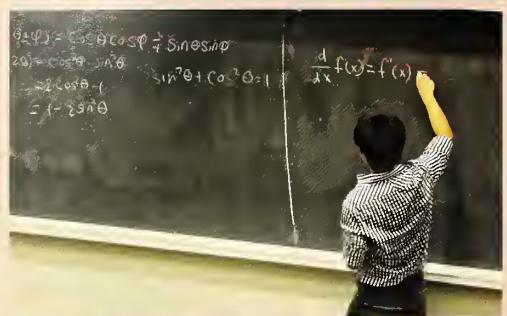 θ±φ) = Cosθ Cosφ ∓ Sinθ Sinφ
2θ) = Cos²θ - Sin²θ
= 2Cos²θ - 1
= 1 - 2Sin²θ
Sin²θ + Cos²θ = 1
d/dx f(x) = f'(x)